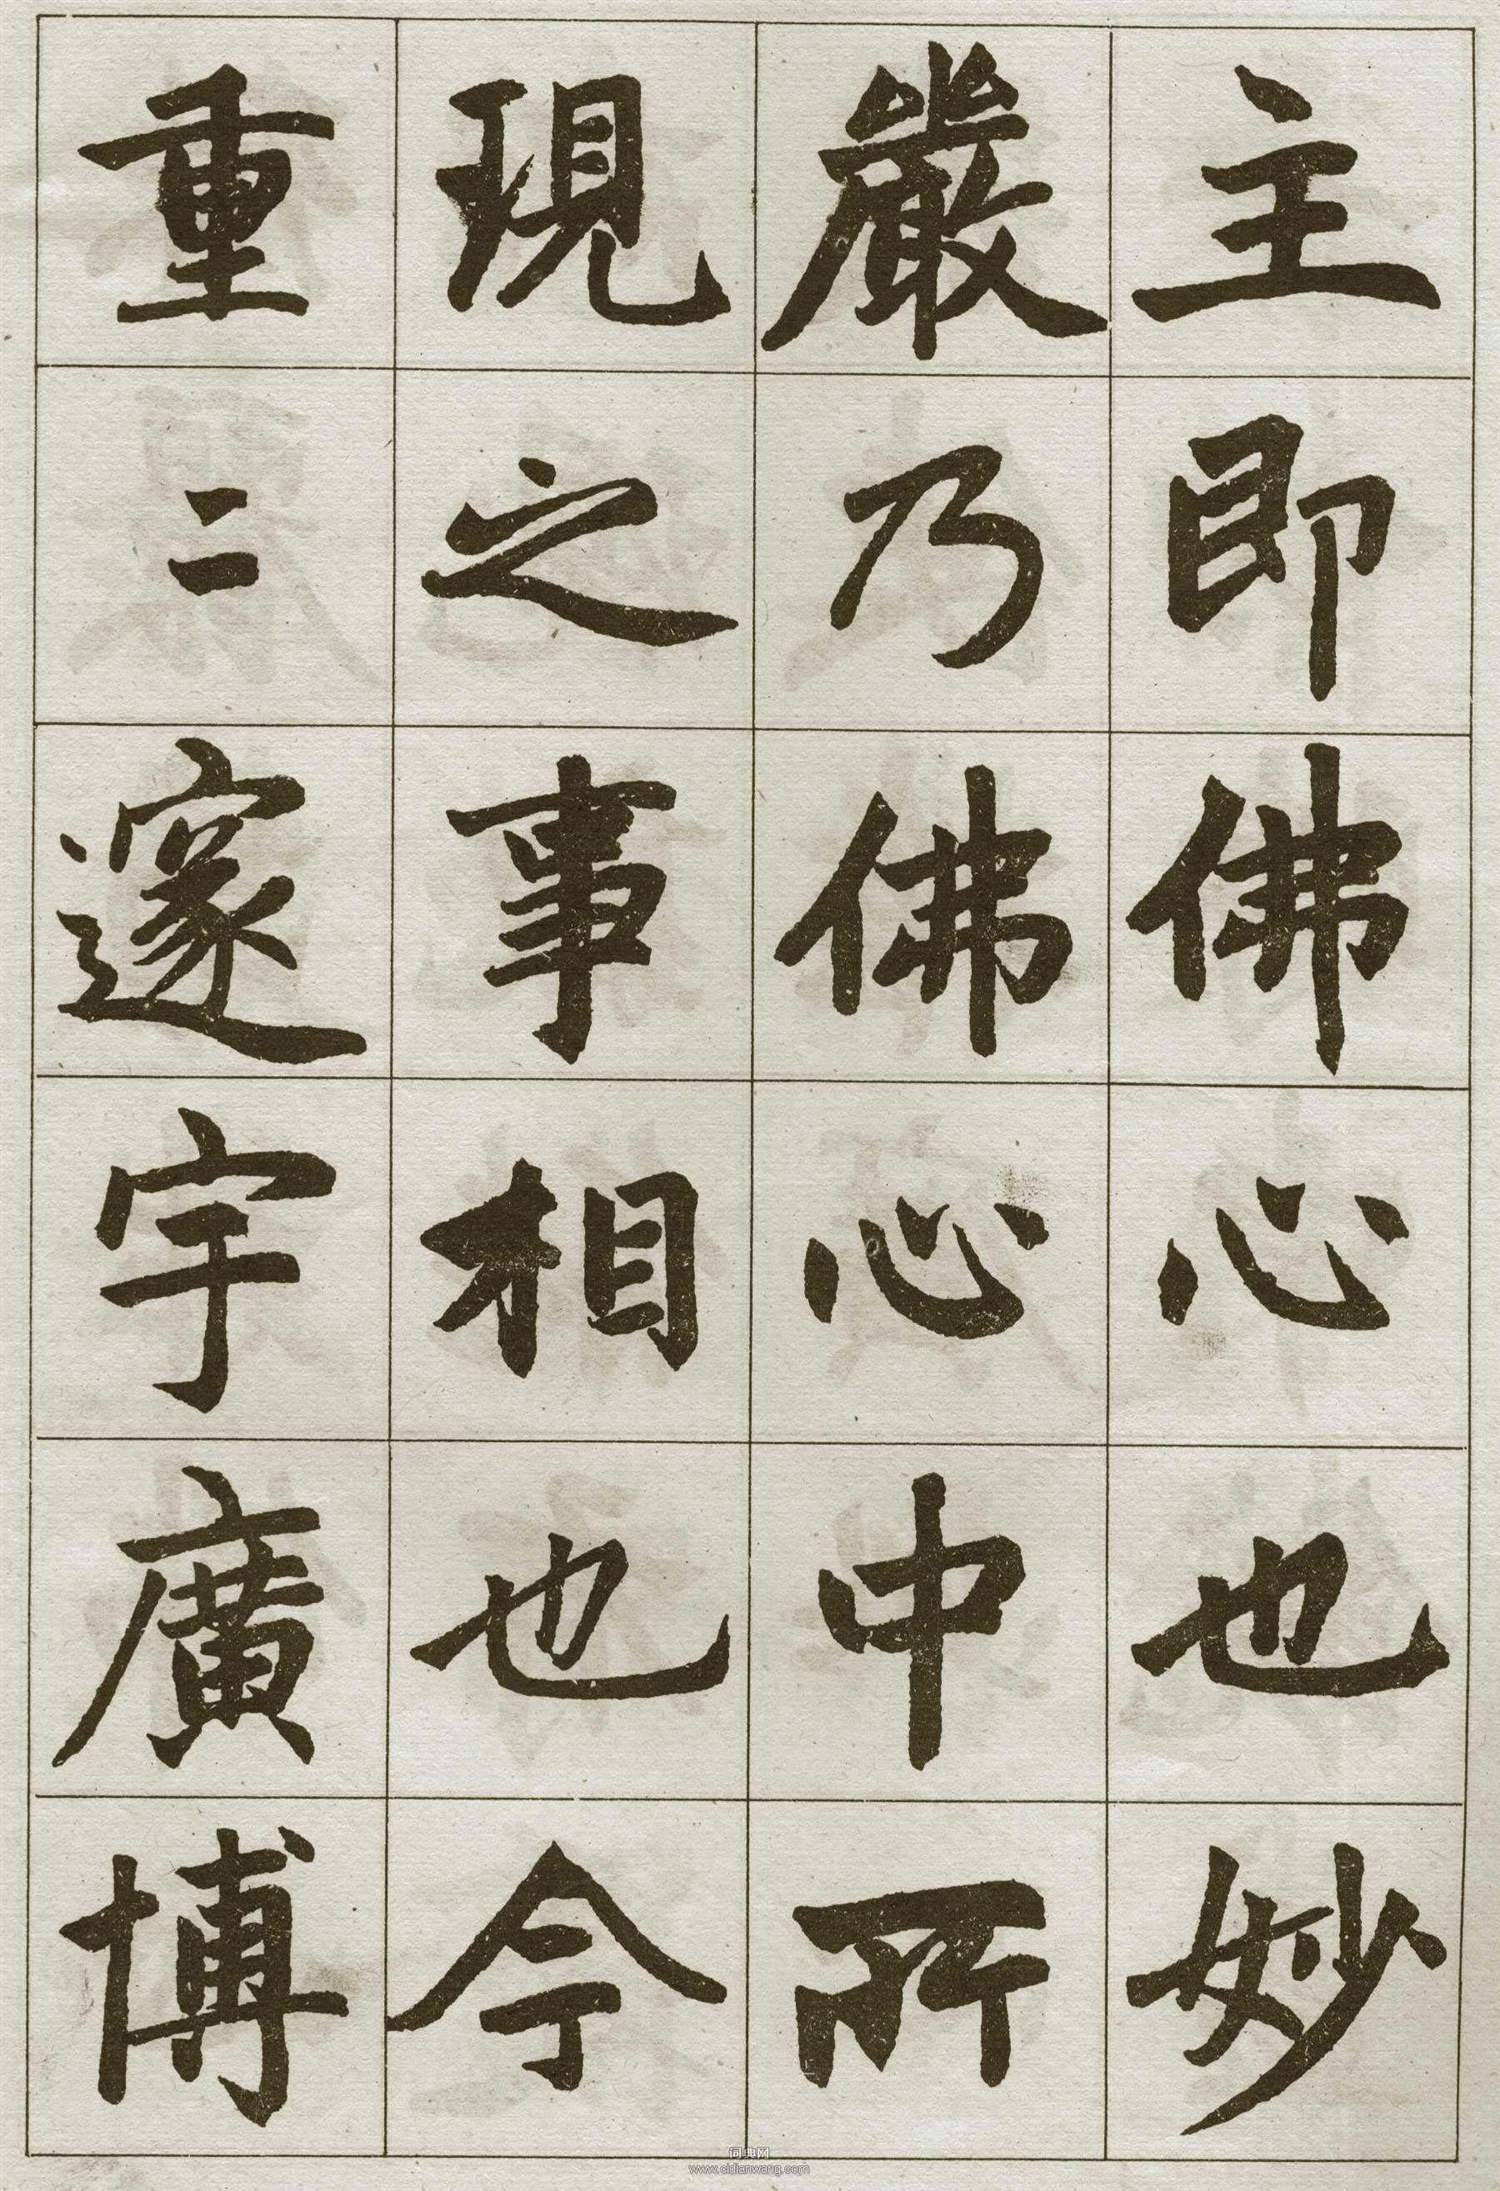 主即佛心也妙
嚴乃佛心中所
現之事相也今
重〻邃宇廣博
词典网
www.cidianwang.com